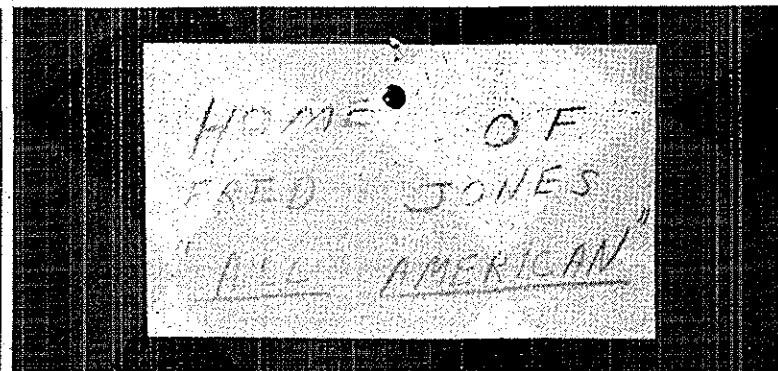 HOME OF
FRED JONES
"ALL AMERICAN"